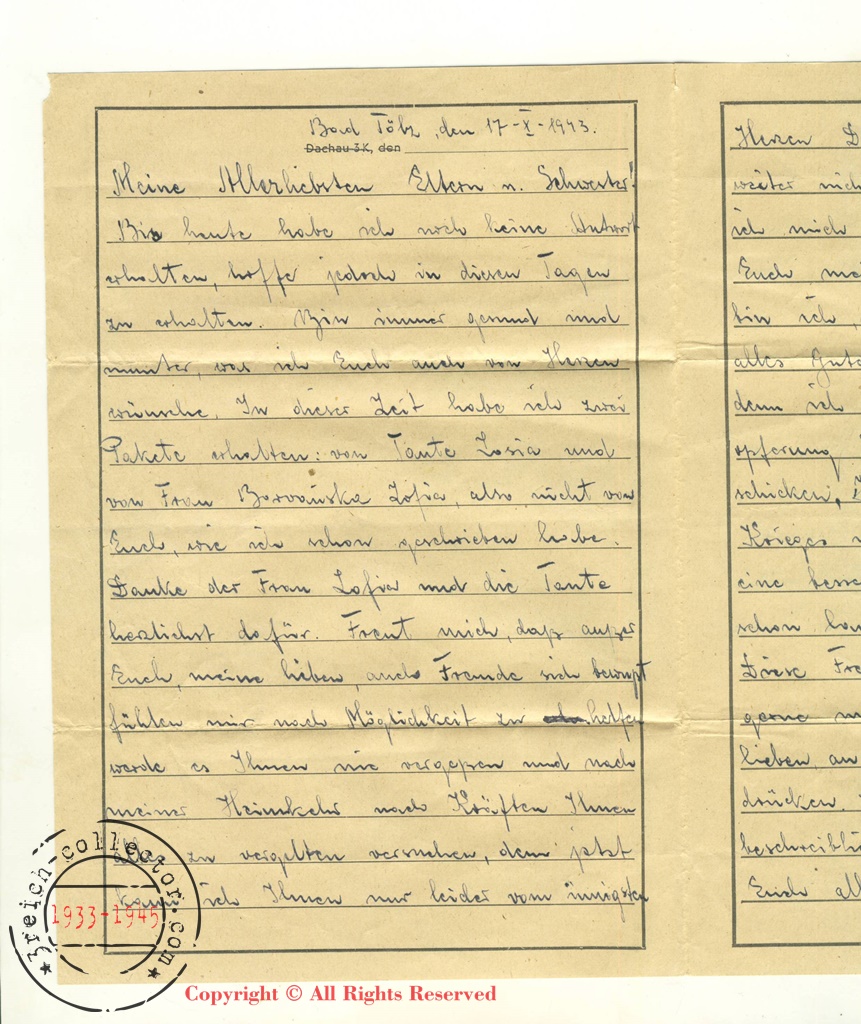 Bad Tölz, den 17-X-1943.
Dachau 3K, den
Meine Allerliebsten Eltern u. Schwester!
Bis heute habe ich noch keine Antwort
erhalten, hoffe jedoch in diesen Tagen
zu erhalten. Bin immer gesund und
munter, was ich Euch auch von Herzen
wünsche. In dieser Zeit habe ich zwei
Pakete erhalten: von Tante Zosia und
von Frau Zofia, also nicht von
Euch, wie ich schon geschrieben habe.
Danke der Frau Zofia und die Tante
herzlichst dafür. Freut mich, daß außer
Euch, meine lieben, auch Fremde sich bewußt
fühlen mir nach Möglichkeit zu helfen
werde es Ihnen nie vergeßen und nach
meiner Heimkehr nach Kräften Ihnen
alles zu vergelten versuchen, denn jetzt
kann ich Ihnen nur leider vom innigsten
Herzen
weiter
ich mich
Euch
bin ich,
alles Gute
denn ich
opferung
schicken,
Krieges
eine
schon
Diese
gerne
lieben, an
drücken.
Euch
3reich-collector.com
1933-1945
Copyright © All Rights Reserved